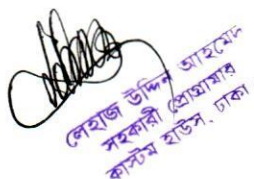 লেহাজ উদ্দিন আহমেদ
সহকারী প্রোগ্রামার
কাস্টম হাউস, ঢাকা